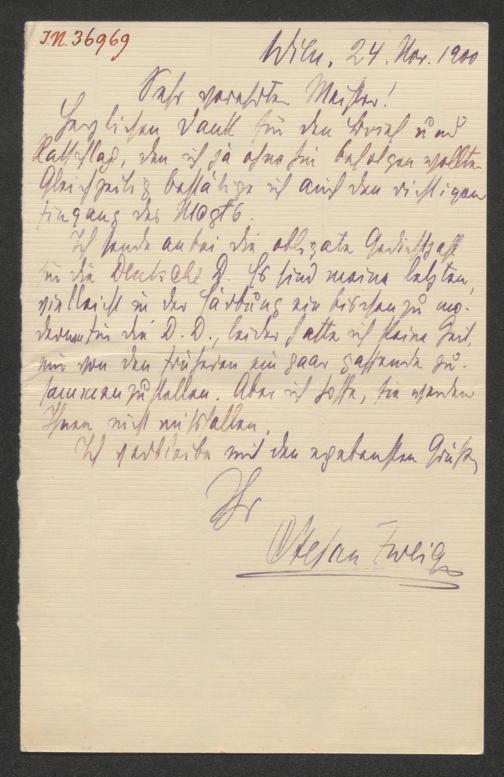 I.N. 36969
Wien, 24. Nov. 1900
Sehr verehrter Meister!
Herzlichen Dank für den Brief und
Ratschlag, den ich ja ohnehin befolgen wollte.
Gleichzeitig bestätige ich auch den richtigen
Eingang des Magts.
Ich sende anbei die obligate Gedicht
für die Deutsche D. Es sind meine letzten,
vielleicht in der Färbung ein bischen zu mo-
dern für die D. D., leider hatte ich keine Zeit,
mir von den früheren ein paar passende zu-
sammenzustellen. Aber ich hoffe, sie werden
Ihnen nicht missfallen.
Ich verbleibe mit den ergebensten Grüßen
Ihr
Stefan Zweig